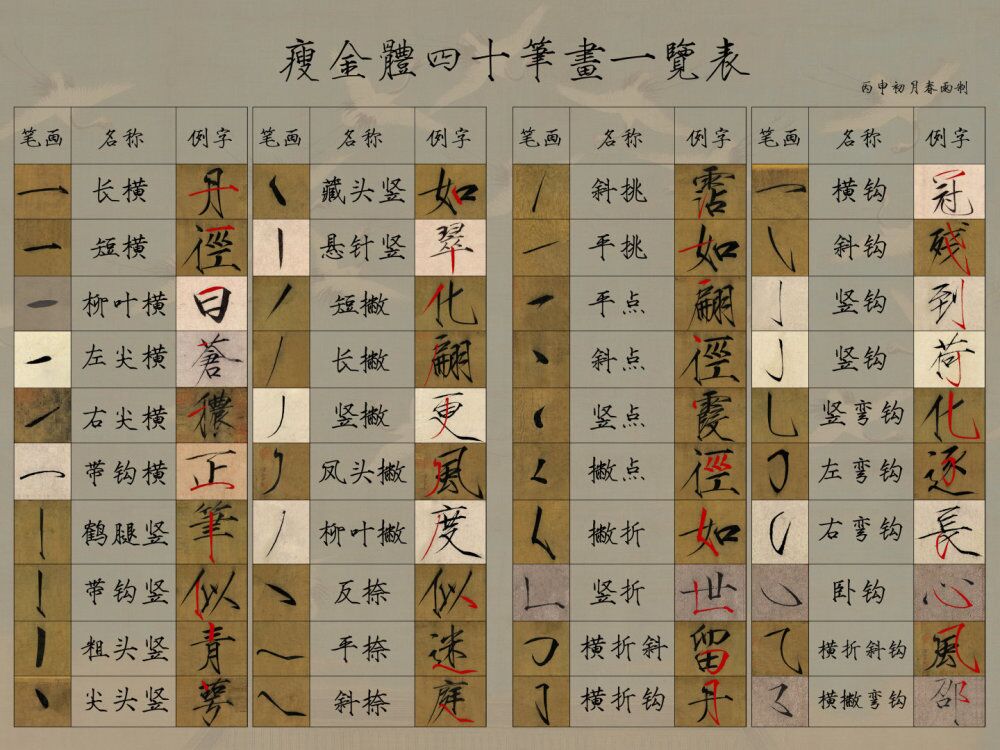 瘦金體四十筆畫一覽表
丙申初月春雨制
笔画 名称 例字 笔画 名称 例字 笔画 名称 例字 笔画 名称 例字
长横 丹 藏头竖 如 斜挑 霑 横钩 冠
短横 徑 悬针竖 翠 平挑 如 斜钩 残
柳叶横 曰 短撇 化 平点 翩 竖钩 到
左尖横 蒼 长撇 翩 斜点 徑 竖钩 荷
右尖横 穠 竖撇 更 竖点 霞 竖弯钩 化
带钩横 正 凤头撇 風 撇点 徑 左弯钩 逐
鹤腿竖 筆 柳叶撇 度 撇折 如 右弯钩 長
带钩竖 似 反捺 似 竖折 世 卧钩 心
粗头竖 青 平捺 迷 横折斜 留 横折斜钩 風
尖头竖 萼 斜捺 庭 横折钩 丹 横撇弯钩 邵